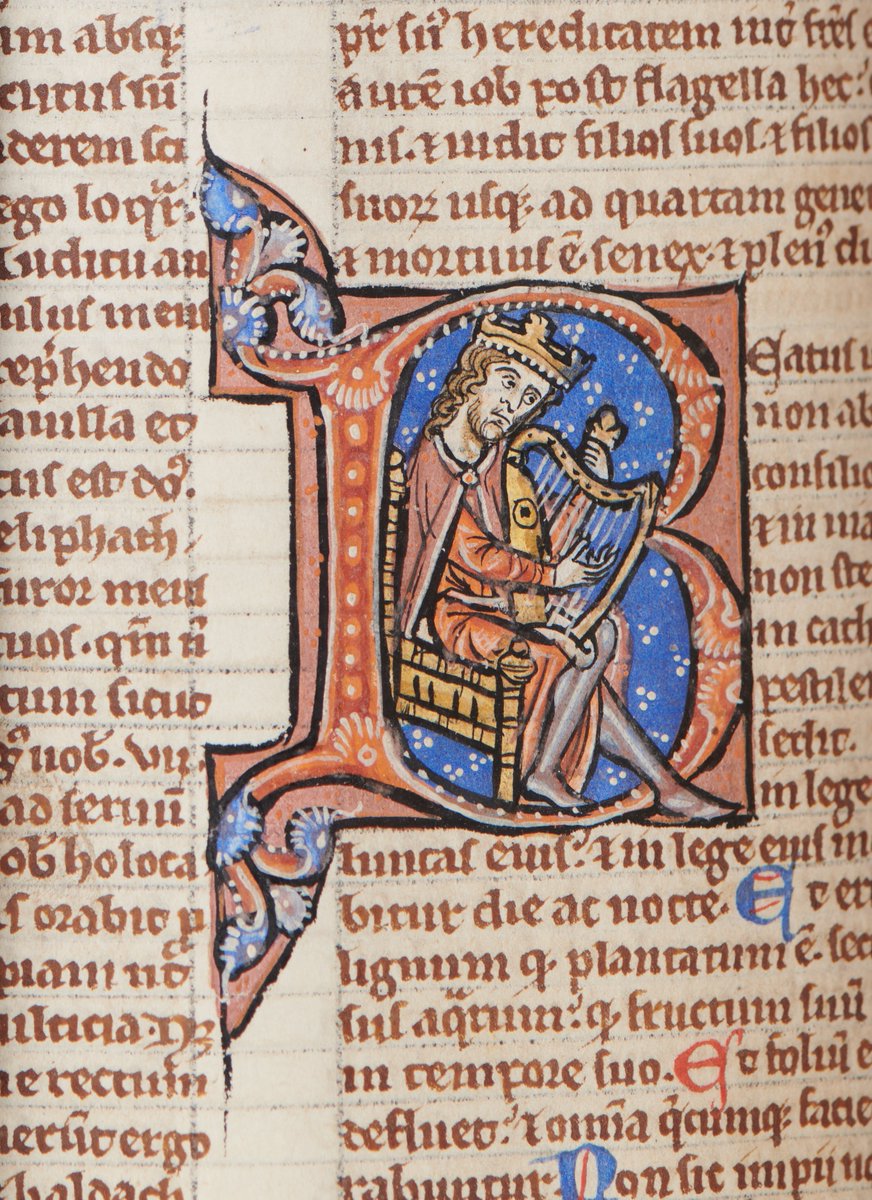 um absq;
cutus sũ
derem sci
ego loqr̃.
Auditu au
ulus meus
rep̃hendo
auilla et
tus est dñs.
eliphath
furor meus
tuos. qm̃ ñ
tum sicut
g̃ uob. vii
ad seruũ
ob holoca
s orabit p
ulticia.
e rectum
erũt ergo
baldach
pr̃ suꝰ hereditatem int̃ frẽs
autẽ iob post flagella hec.
nis. ⁊ uidit filios suos. ⁊ filios
suoꝝ usq; ad quartam gener
⁊ mortuus ẽ. senex. ⁊ plenꝰ di
B
Eatus u
non ab
consilio
⁊ in uia
non ste
in cath
pestilen
sedit.
in lege
luntas eius. ⁊ in lege eius m
bitur die ac nocte. Et eri
lignum q̃ plantatum ẽ. sec
sus aq̃rum. q̃ fructum suũ
in tempore suo. Et foliũ e
defluet. ⁊ omĩa q̃cumq; facie
rabuntur Non sic impii no